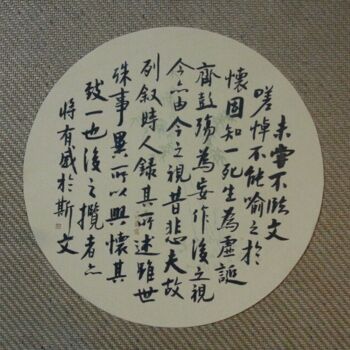 未嘗不臨文
嗟悼不能喻之於
懷固知一死生為虛誕
齊彭殤為妄作後之視
今亦由今之視昔悲夫故
列敘時人錄其所述雖世
殊事異所以興懷其
致一也後之攬者亦
將有感於斯文